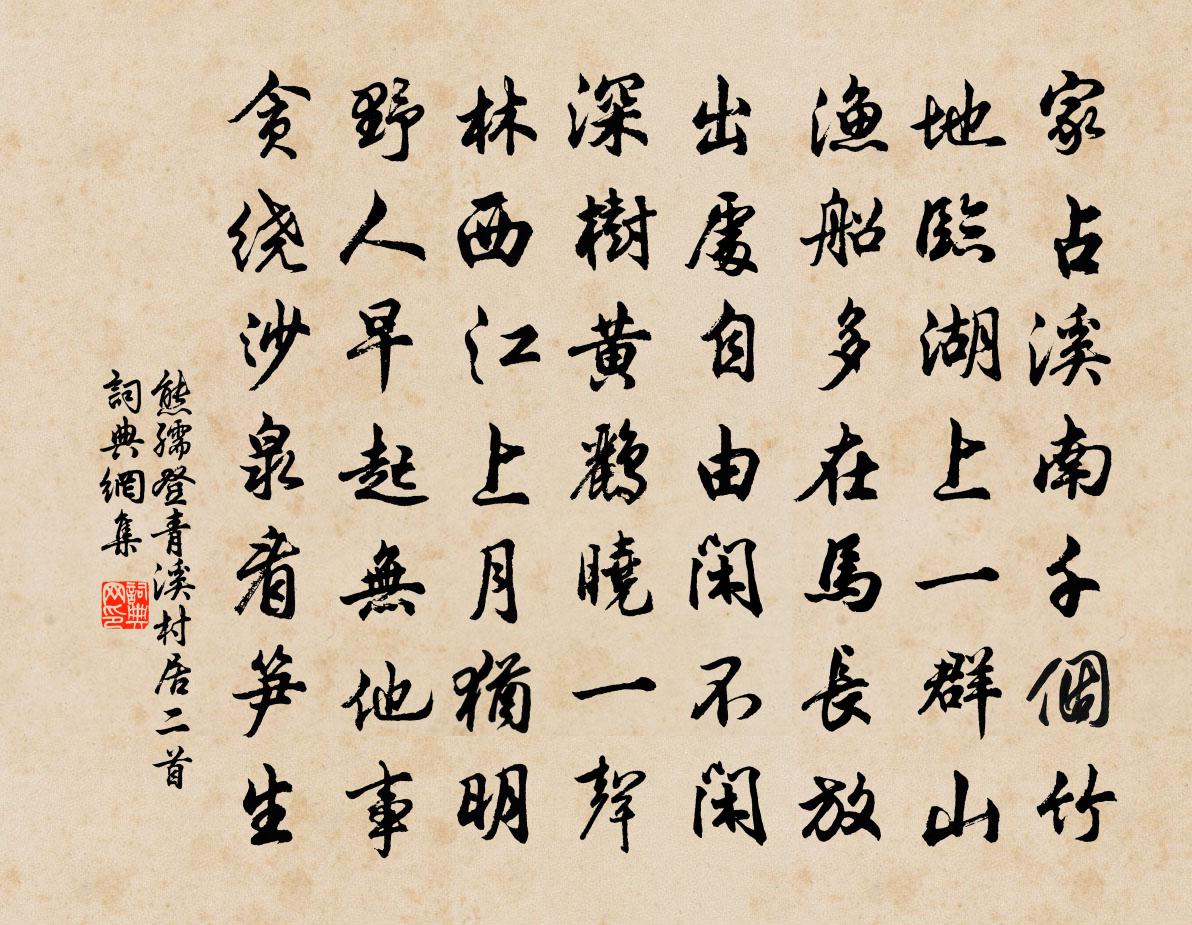 家占溪南千個竹
地臨湖上一群山
漁船多在馬長放
出處自由閑不閑
深樹黃鸝曉一聲
林西江上月猶明
野人早起無他事
貪绕沙泉看笋生
熊孺登青溪村居二首
詞典網集
詞典网印